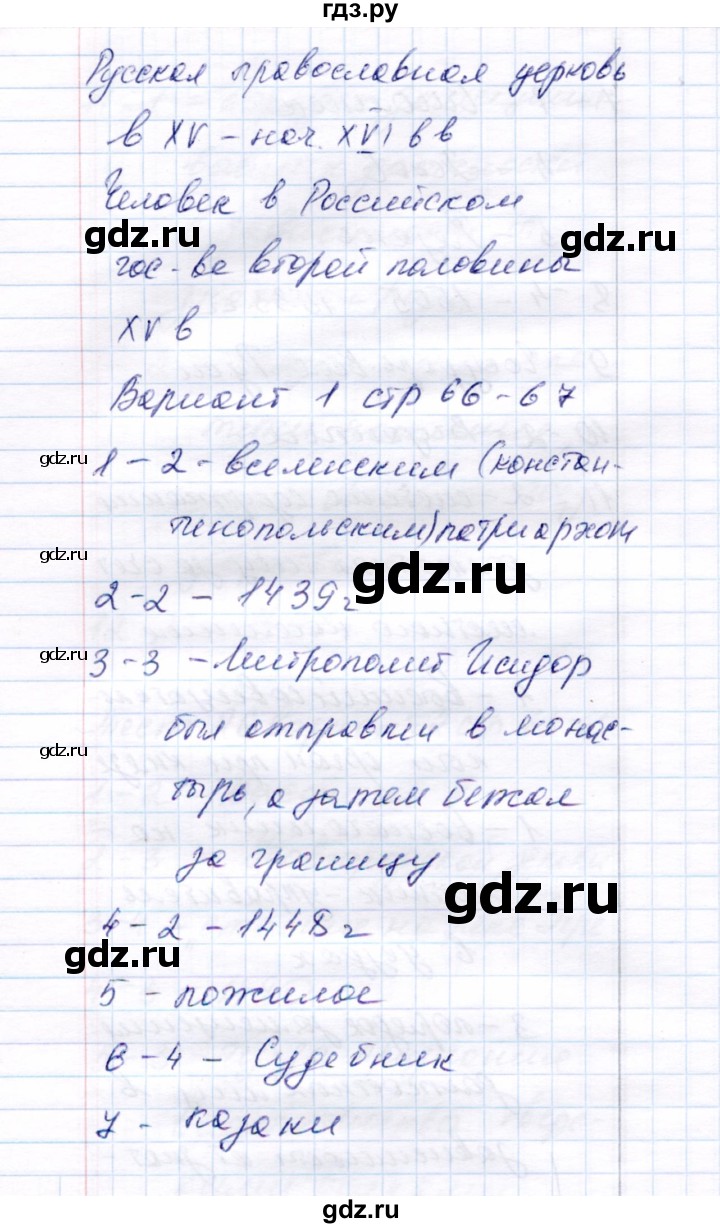 гдз.ру
Русская православная церковь
в XV – нач. XVI в в
Человек в Российском
gdz.ru gdz.ru
гос-ве второй половины
XV в
Вариант 1 стр 66-67
gdz.ru
1 – 2 – вселенским (констан-
тинопольским) патриархом
gdz.ru
gdz.ru
2-2 – 1439 г
gdz.ru
3-3 – Митрополит Исидор
был отправлен в монас-
gdz.ru
тырь, а затем бежал
за границу
gdz.ru
4-2 – 1448 г
gdz.ru
5 – пожилое
6-4 – Судебник
7 – казаки
gdz.ru